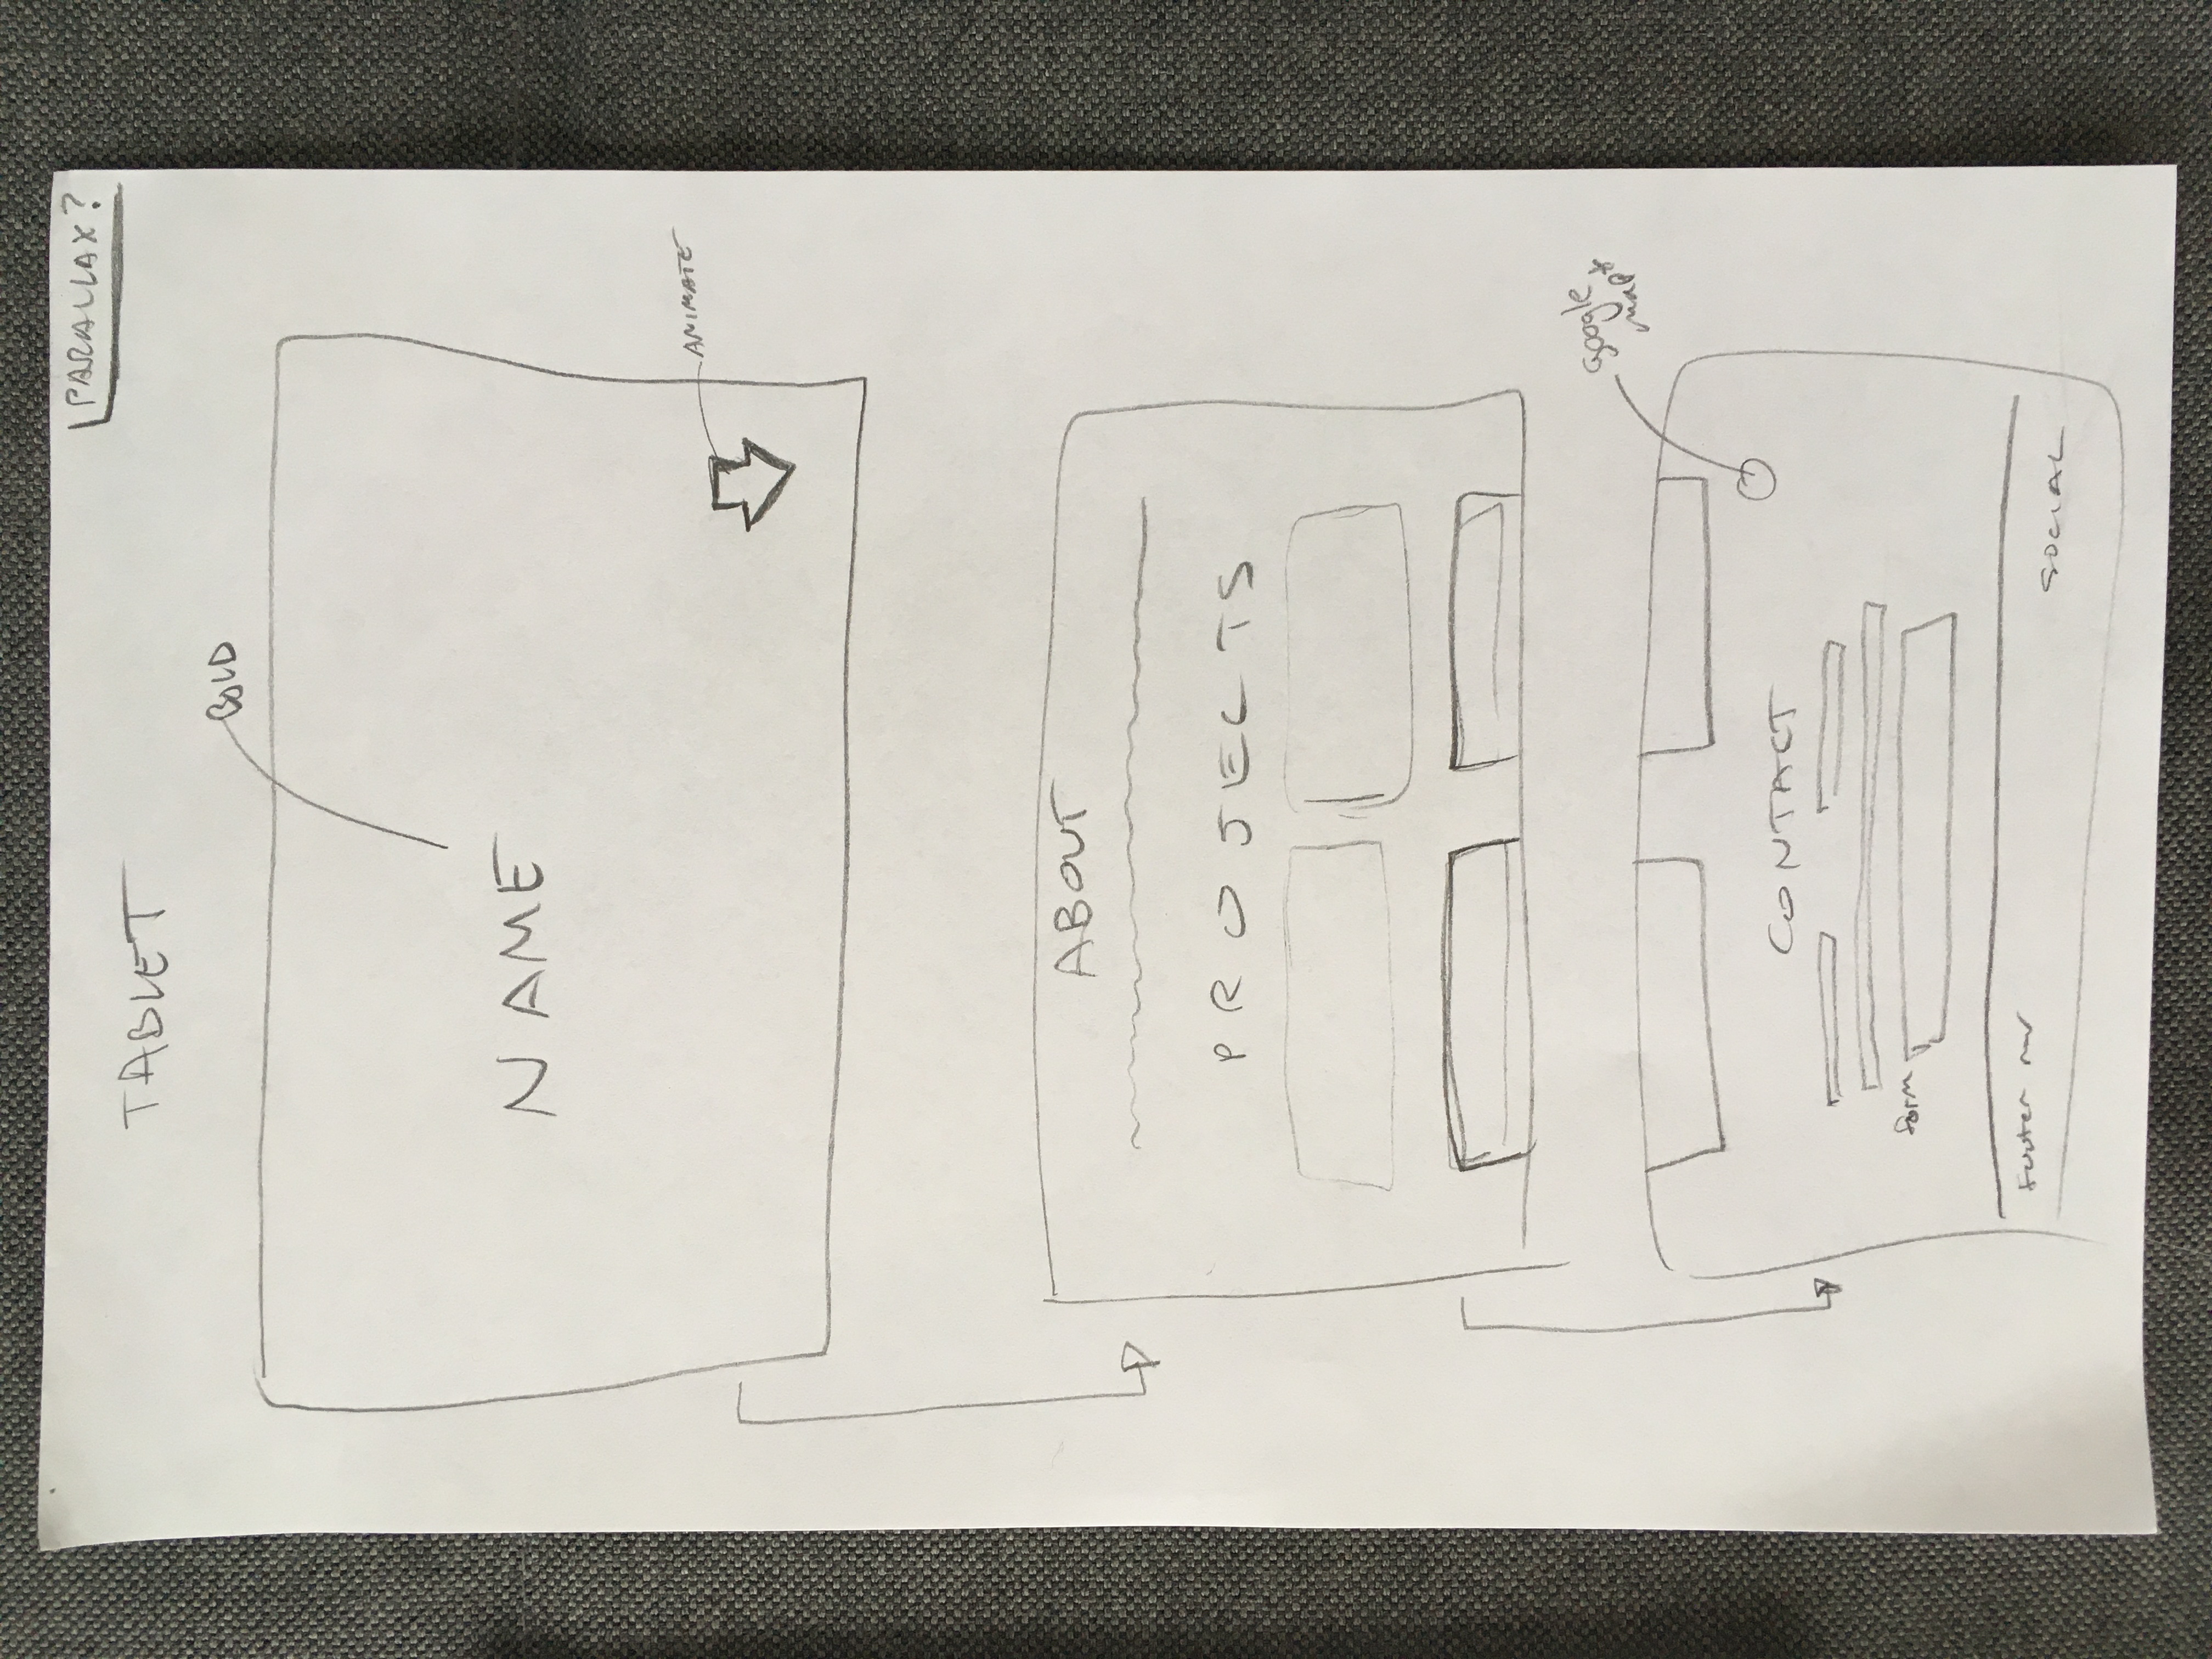 PARALLAX?
TABLET
BOLD
NAME
ANIMATE
ABOUT
PROJECTS
Google
map*
CONTACT
form
Footer nav
SOCIAL